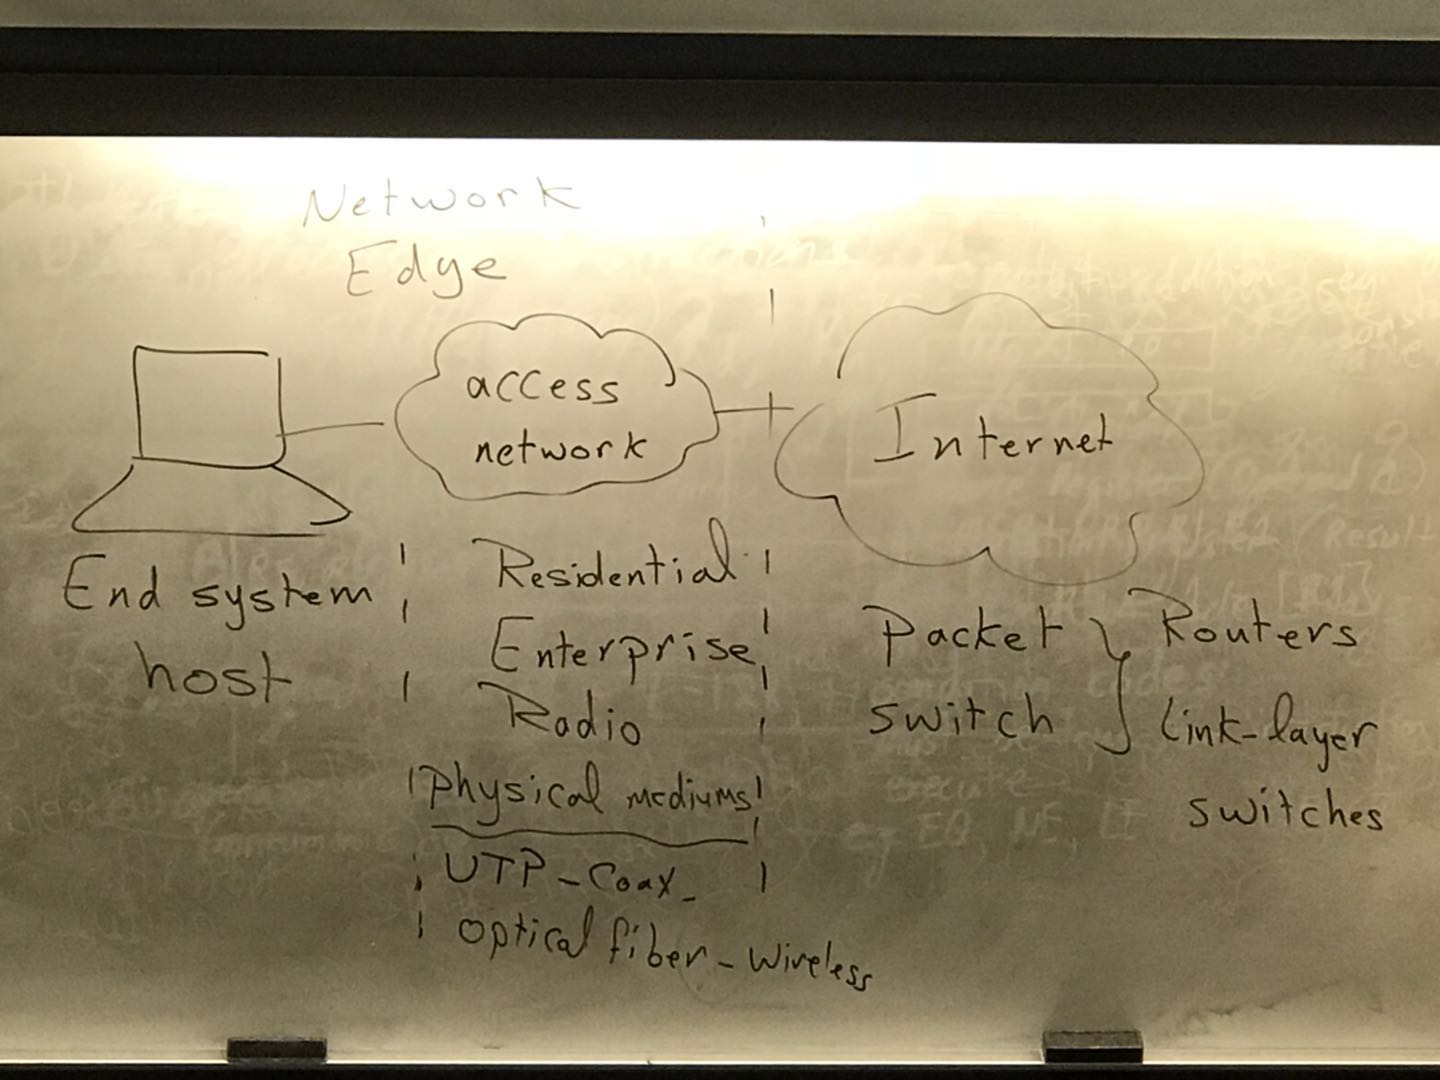 Network
Edge
access
network
Internet
End system
host
Residential
Enterprise
Radio
Physical mediums
UTP - Coax -
optical fiber - wireless
Packet
switch
Routers
Link-layer
switches
EQ, NE,